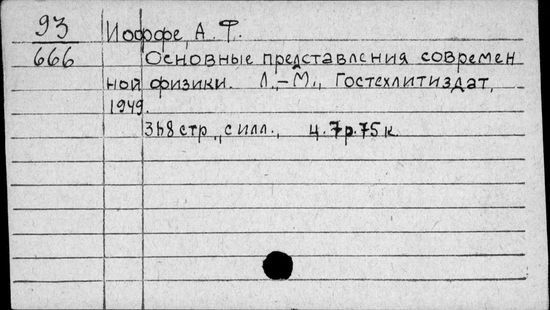 93
Иоффе, А. Ф.
666
Основные представления современ
ной физики. Л.-М., Гостехлитиздат,
1949.
368 стр., с илл., ц. 7р.75к.